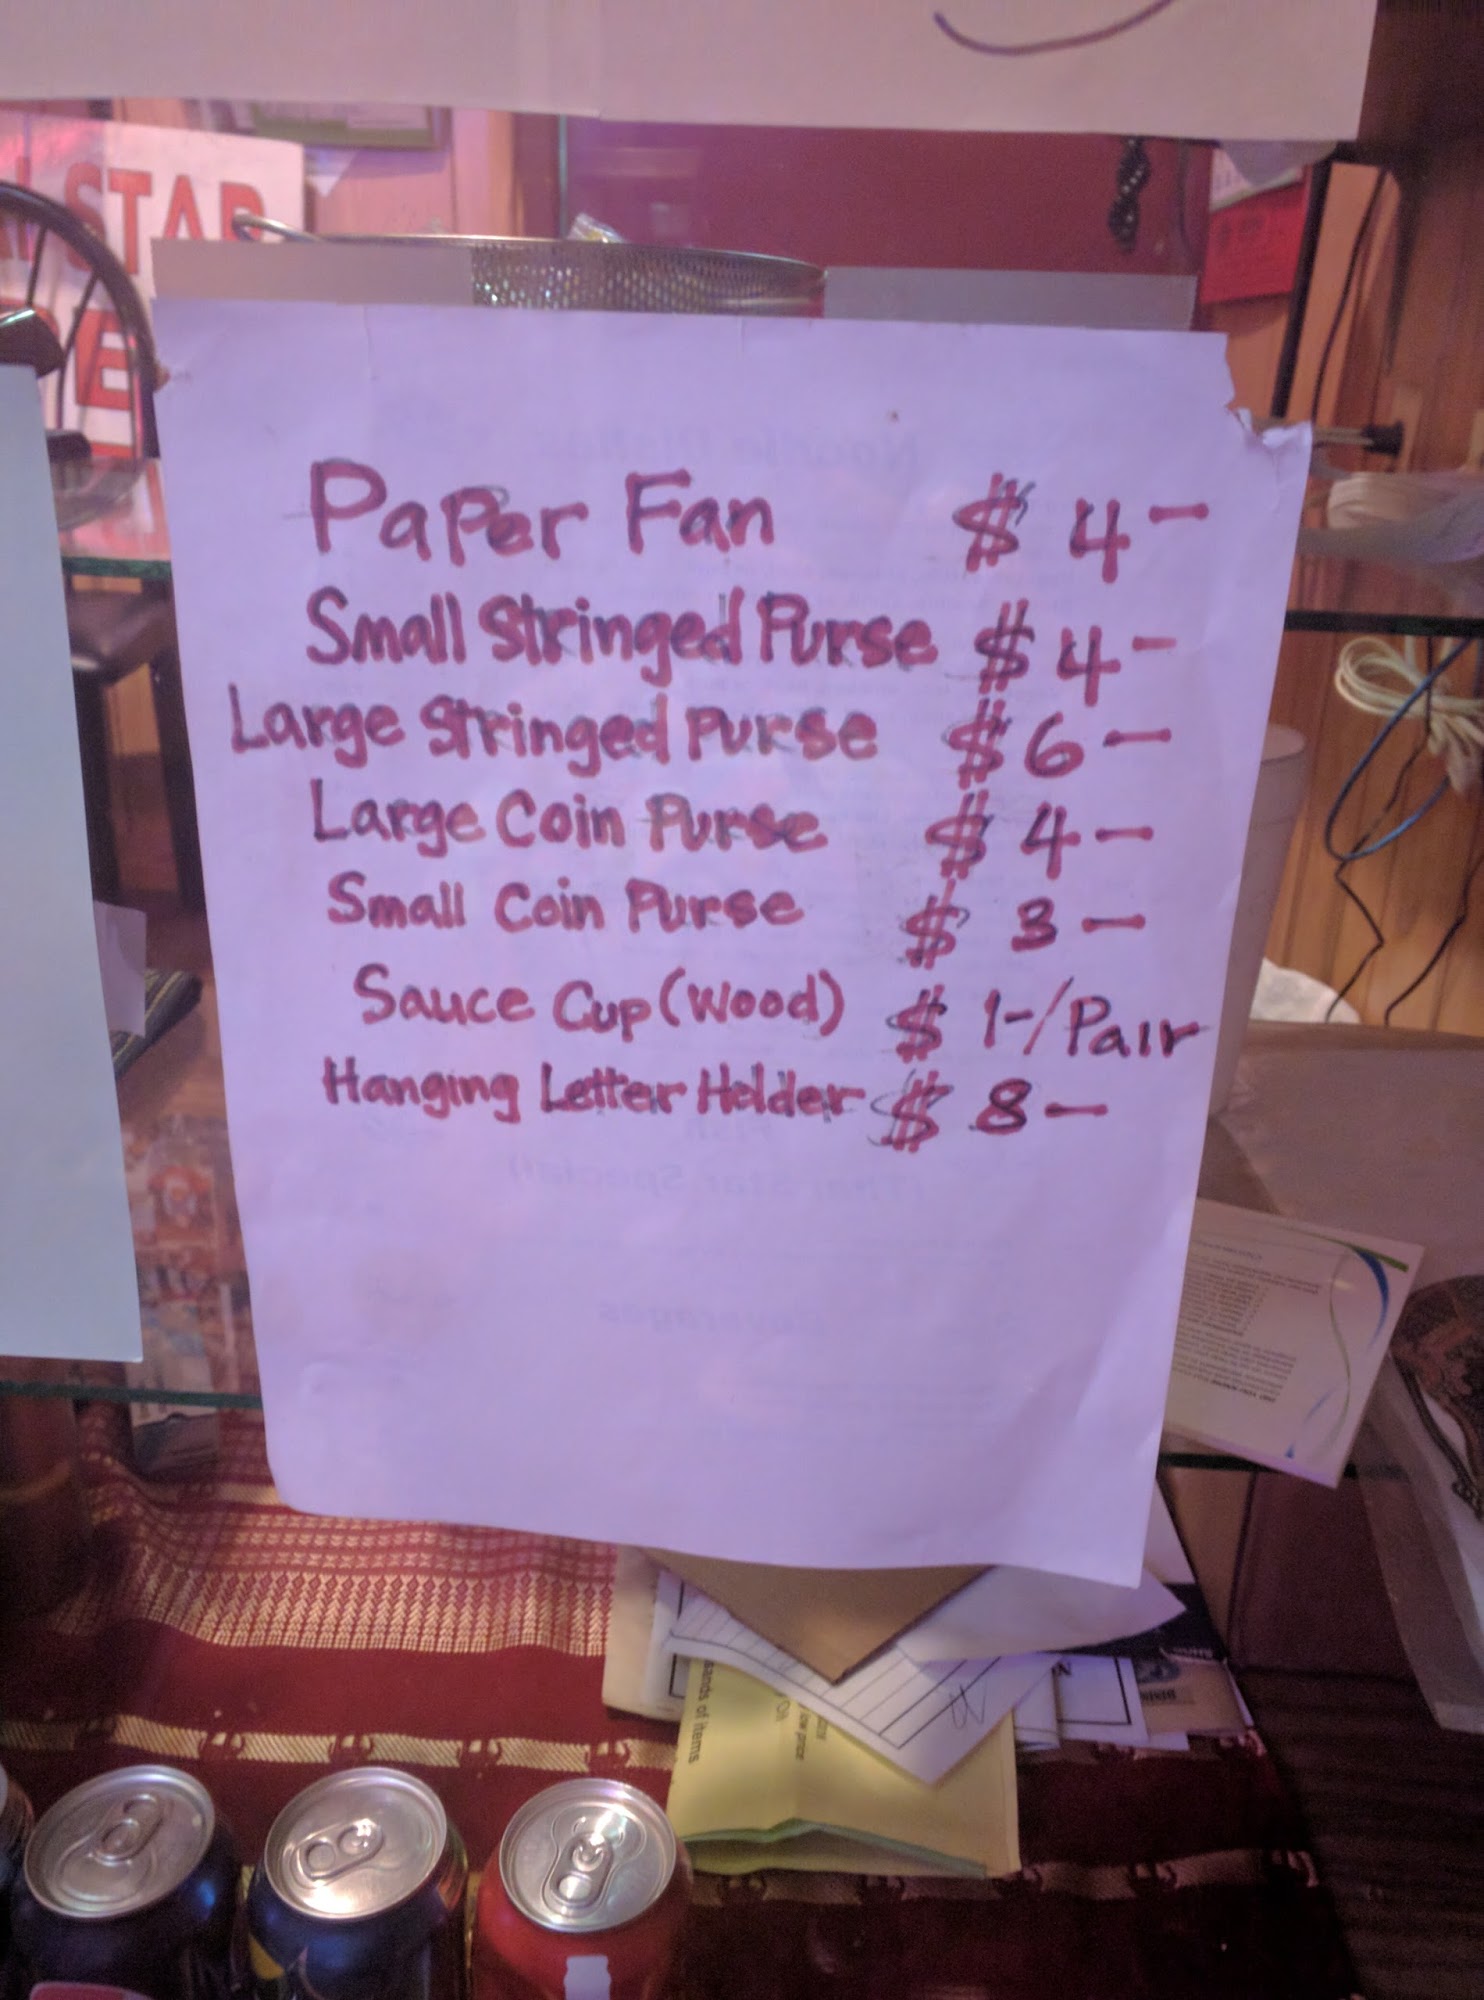 STAR
Paper Fan $ 4-
Small Stringed Purse $ 4-
Large Stringed Purse $ 6-
Large Coin Purse $ 4-
Small Coin Purse $ 3-
Sauce Cup (Wood) $ 1-/Pair
Hanging Letter Holder $ 8-
sands of items
low price